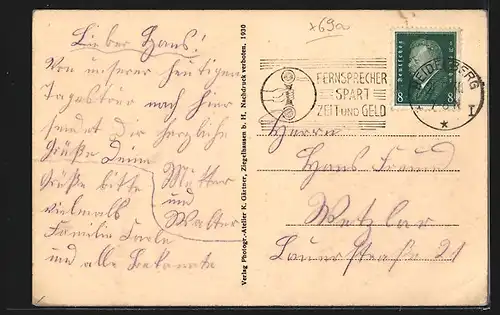 x69a
Lieber Hans!
Von unserer heutigen
Tagestour nach hier
sendet dir herzliche
Grüße Deine
Mutter
und
Walter
Grüße bitte
vielmals
Familie
und alle Bekannte
Verlag Photogr.-Atelier K. Gärtner, Ziegelhausen b. H. Nachdruck verboten. 1930
FERNSPRECHER
SPART
ZEIT UND GELD
Deutsches
8 8
HEIDELBERG
I
Herrn
Hans Freund
Wetzlar
Lauerstraße 21